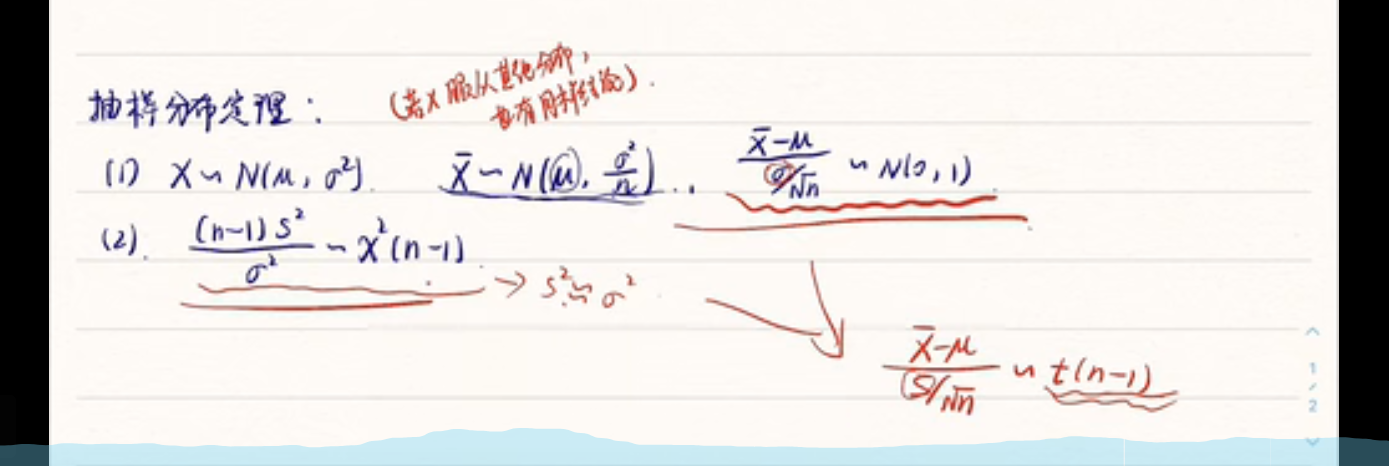 抽样分布定理：
(若X服从其他分布，
也有同样结论).
(1) X~N(μ, σ²). X̄~N(μ, σ²/n).. (X̄-μ)/(σ/√n) ~ N(0,1)
(2). (n-1)S²/σ² ~ χ²(n-1). → S²≈σ²
(X̄-μ)/(S/√n) ~ t(n-1)
1
/
2